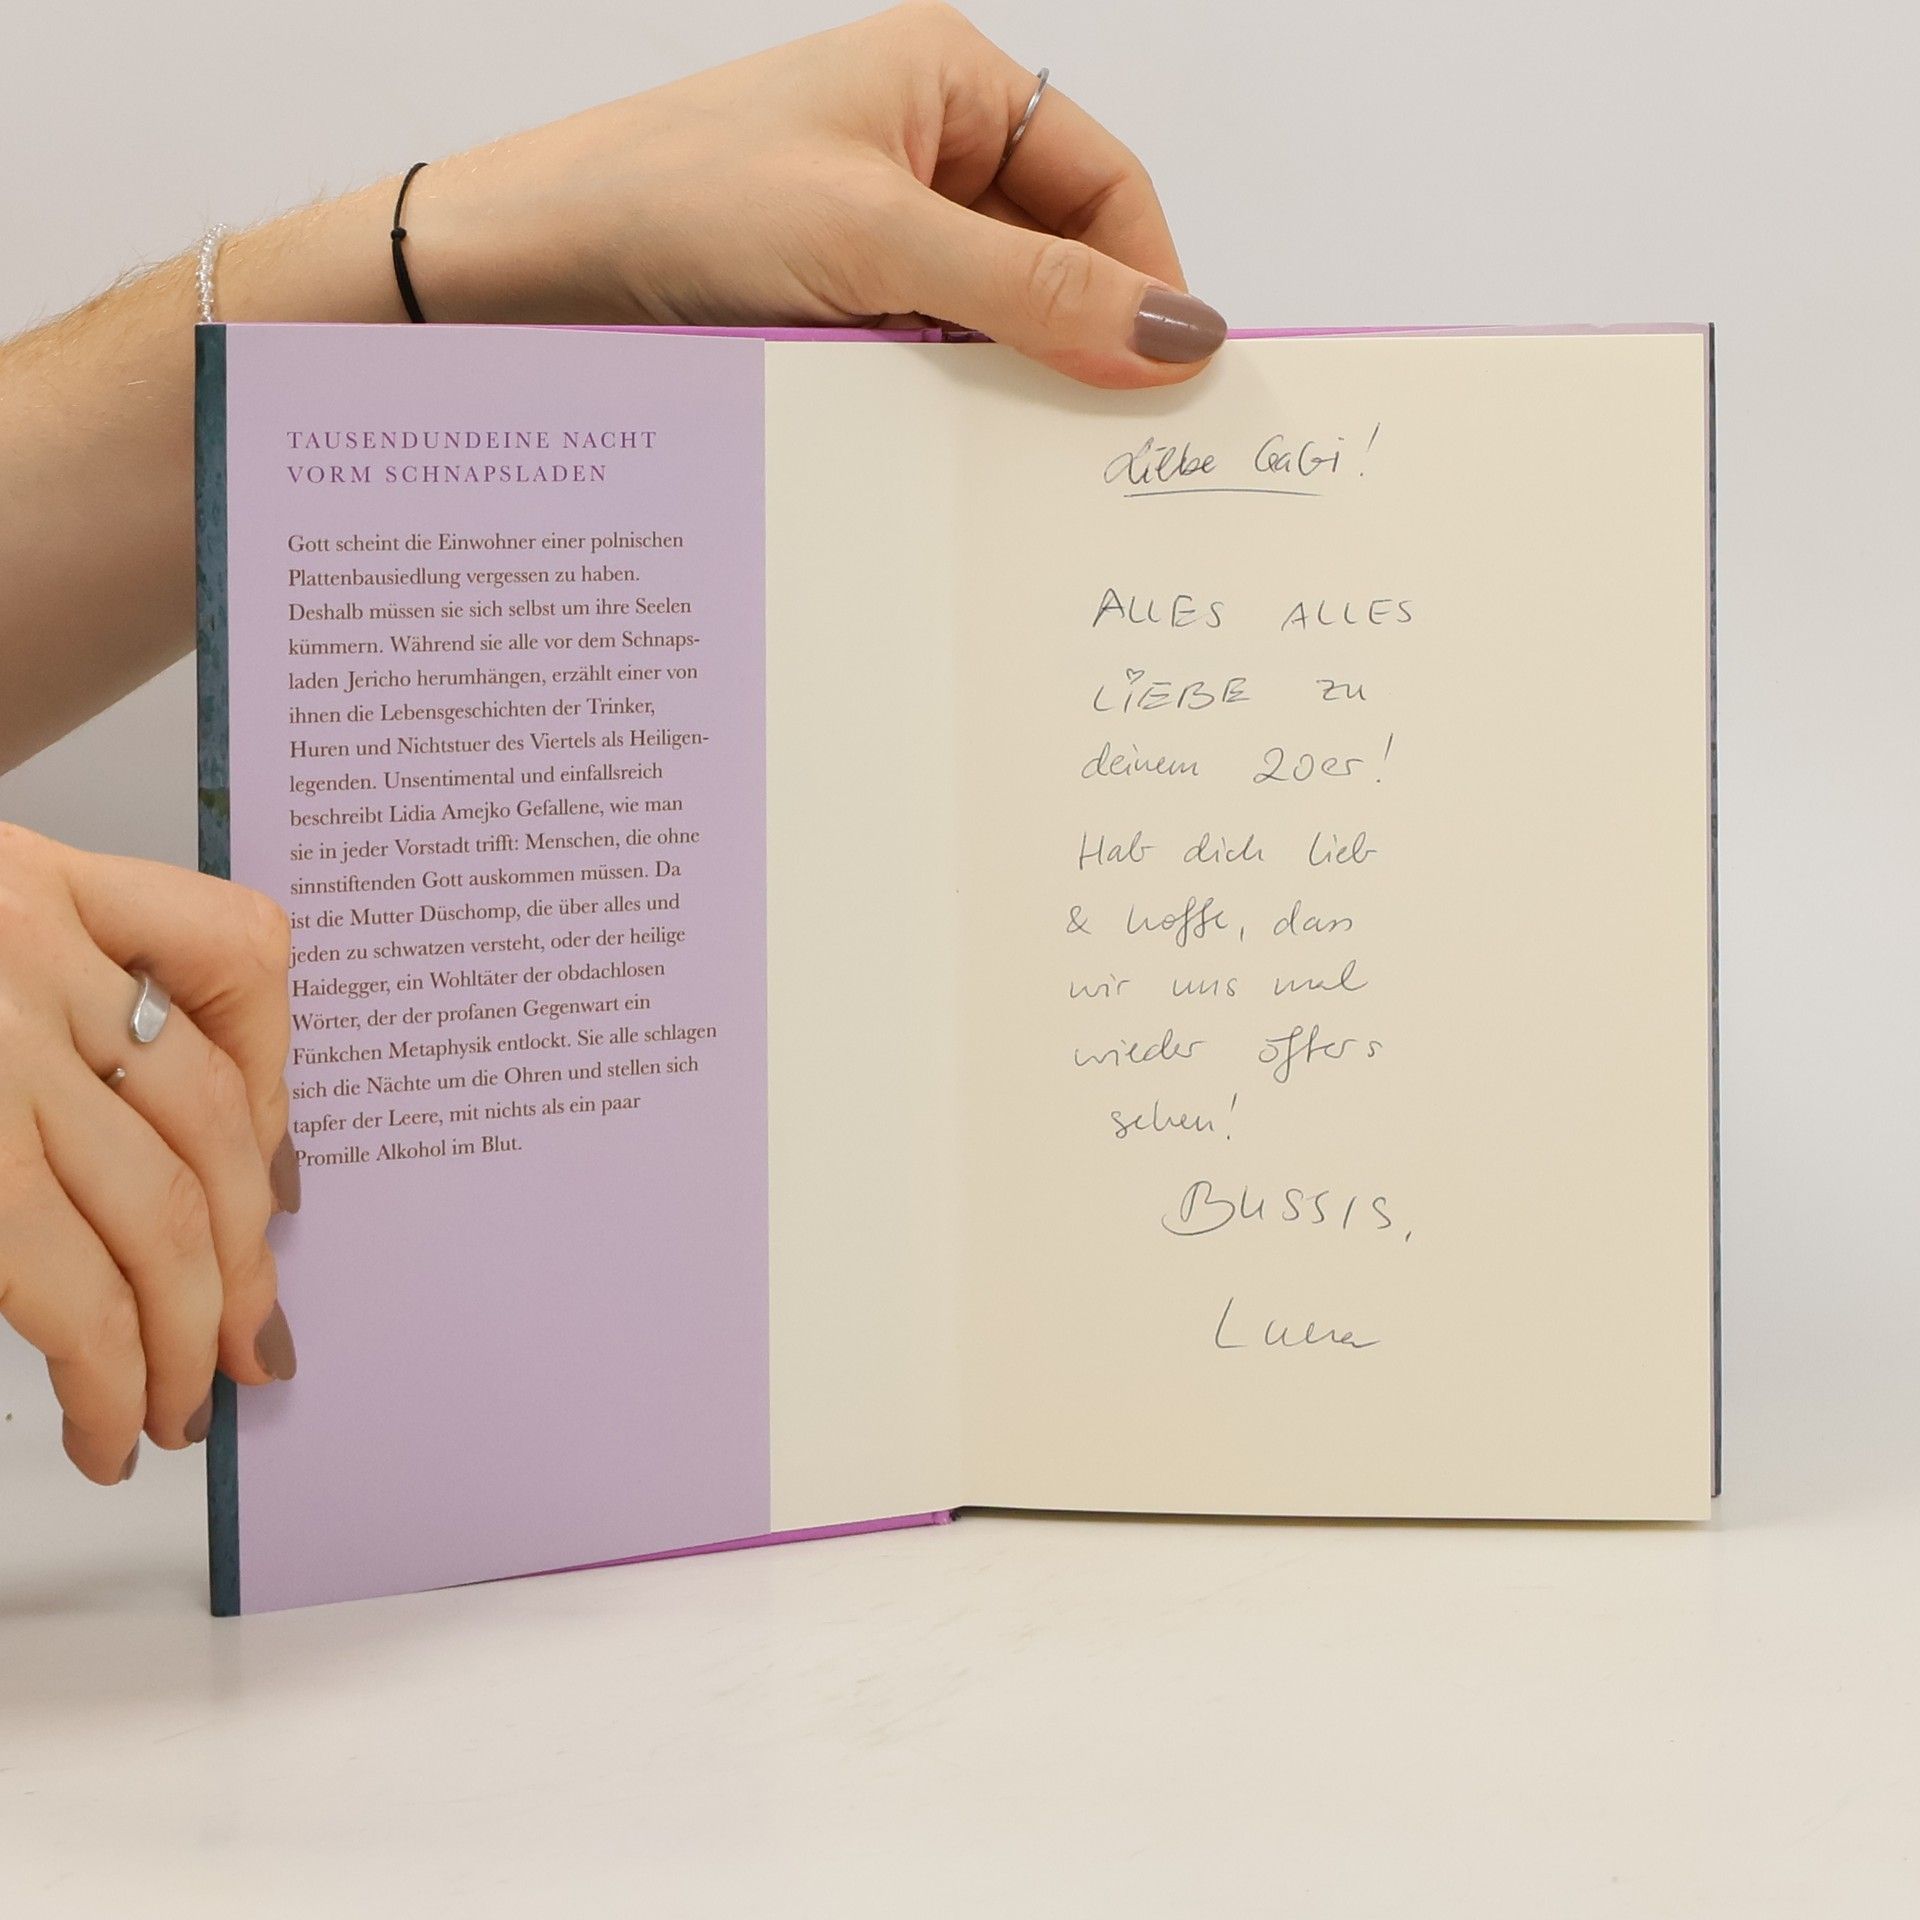 TAUSENDUNDEINE NACHT
VORM SCHNAPSLADEN
Gott scheint die Einwohner einer polnischen
Plattenbausiedlung vergessen zu haben.
Deshalb müssen sie sich selbst um ihre Seelen
kümmern. Während sie alle vor dem Schnaps-
laden Jericho herumhängen, erzählt einer von
ihnen die Lebensgeschichten der Trinker,
Huren und Nichtstuer des Viertels als Heiligen-
legenden. Unsentimental und einfallsreich
beschreibt Lidia Amejko Gefallene, wie man
sie in jeder Vorstadt trifft: Menschen, die ohne
sinnstiftenden Gott auskommen müssen. Da
ist die Mutter Düschomp, die über alles und
jeden zu schwatzen versteht, oder der heilige
Haidegger, ein Wohltäter der obdachlosen
Wörter, der der profanen Gegenwart ein
Fünkchen Metaphysik entlockt. Sie alle schlagen
sich die Nächte um die Ohren und stellen sich
tapfer der Leere, mit nichts als ein paar
Promille Alkohol im Blut.
Liebe Gabi!
ALLES ALLES
LiEBE zu
deinem 20er!
Hab dich lieb
& hoffe, dass
wir uns mal
wieder öfters
sehen!
BUSSIS,